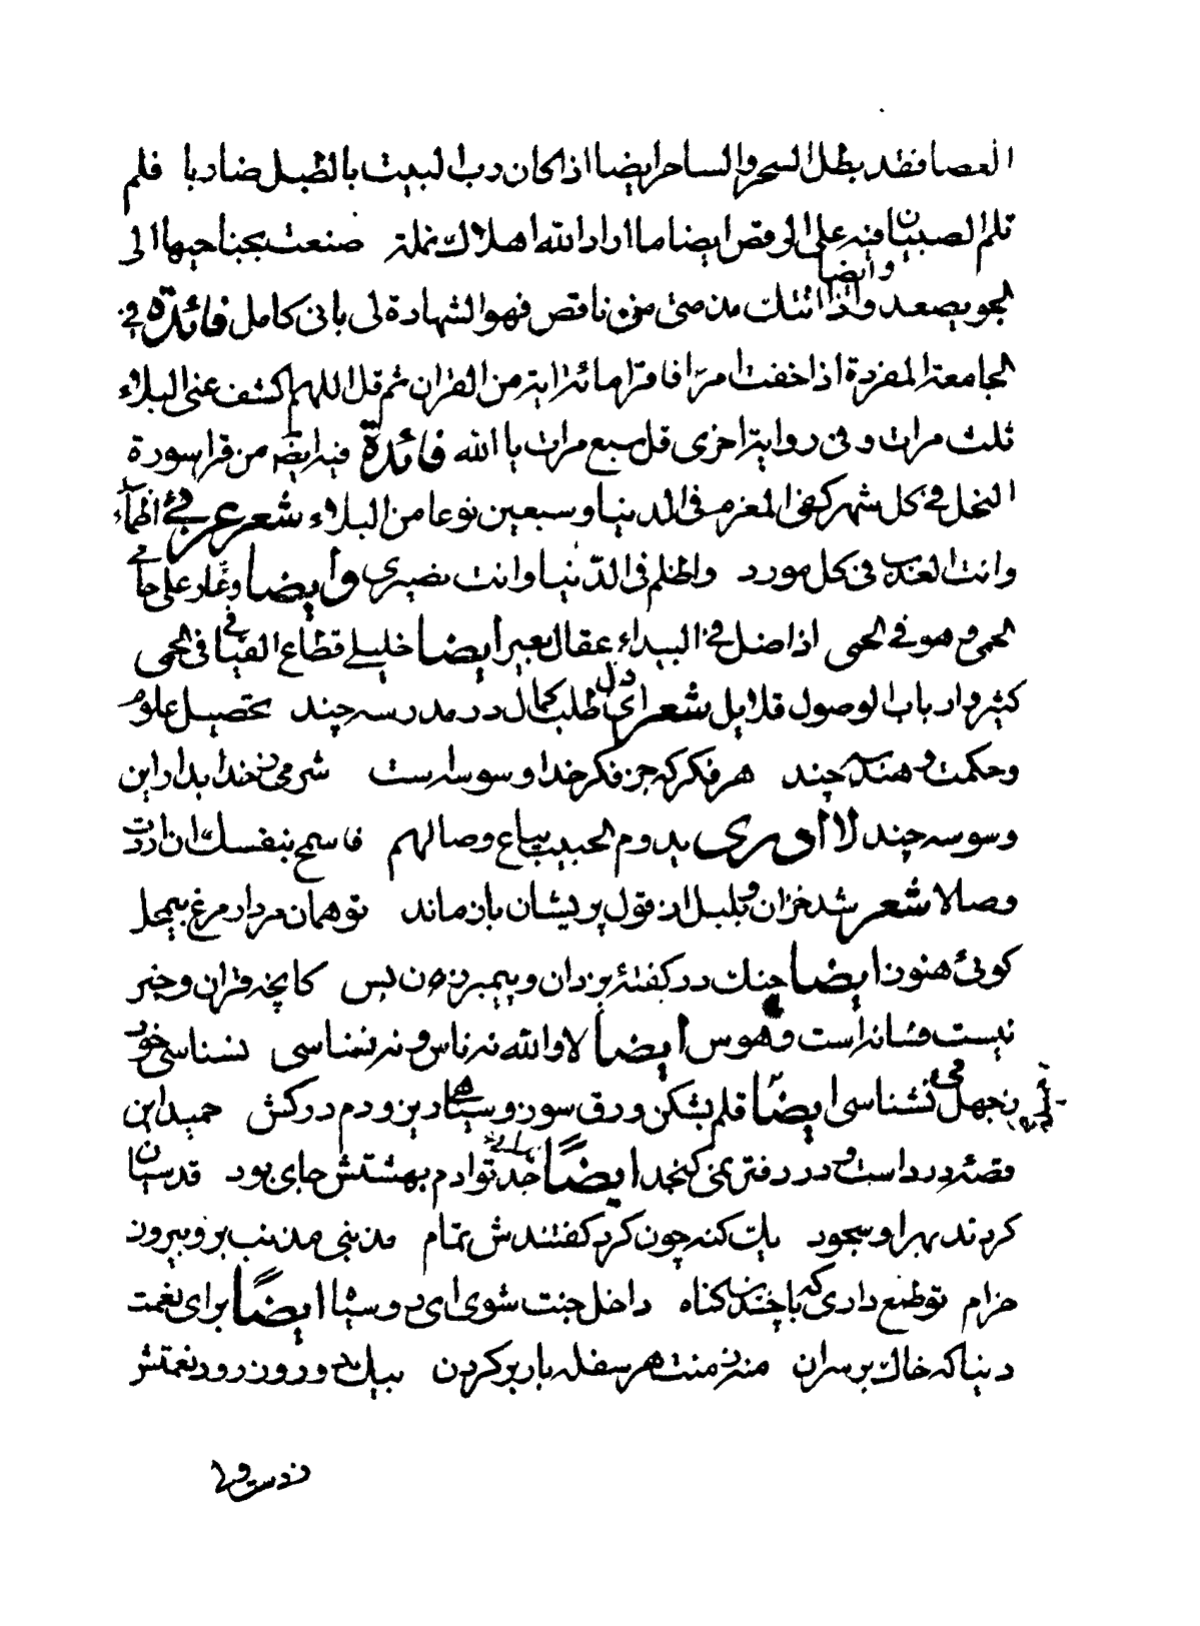 العصا فقد بطل السحر والساحر ايضا اذا كان رب البيت بالطبل ضاربا فلم
تلم الصبيان فيه على الرقص ايضا ما اراد الله اهلاك نملة صنعت بجناحيها الى
وايضا
الجو يصعد واذا اتتك مذمتى من ناقص فهو الشهادة لى بانى كامل فائدة فى
الجامعة المفردة اذا خفت امرا فاقرا مائة اية من القران ثم قل اللهم اكشف عنى البلاء
ثلث مرات و فى رواية اخرى قل سبع مرات يا الله فائدة فيه ايضا من قرا سورة
النحل فى كل شهر كفى المغرم فى الدنيا وسبعين نوعا من البلاء شعر عربى
وانت العذب فى كل مورد واظلم فى الدنيا وانت نصيرى وايضا وعار على حامى
الحمى وهو فى الحمى اذا ضل فى البيداء عقال بعير ايضا خليلى قطاع الفيافى فى الحمى
كثير وارباب الوصول قلايل شعر اى دل طلب كمال در مدرسه چند تحصيل علوم
وحكمت و هندسه چند هر فكر كه جز فكر خدا وسوسه است شرمى ز خدا بدار اين
وسوسه چند لا ادرى يدوم الحبيب بباع وصالهم فاسمح بنفسك ان اردت
وصالا شعر شد خزان و بلبل از قول پريشان باز ماند تو همان مردار مرغ بيمحل
كوئى هنوز ايضا چنك در كفتهٔ يزدان و پيمبر زن و بس كانچه قران و خبر
نيست فسانه است و هوس ايضا لا والله نه ناس و نه نسناسى نشناسى خود
ز جهل مى نشناسى ايضا قلم بشكن ورق سوز و سياهى ريز و دم دركش حميد اين
قصهٔ درد است و در دفتر نمى كنجد ايضا جد تو ادم بهشتش جاى بود قدسيان
كردند بهر او سجود يك كنه چون كرد كفتندش تمام مذنبى مذنب برو بيرون
خرام تو طمع دارى كه با چندين كناه داخل جنت شوى اى رو سياه ايضا براى نعمت
دنيا كه خاك بر سر ان منه ز منت هر سفله بار بر كردن بيك دو روز رود نعمتش
ز دست ولى